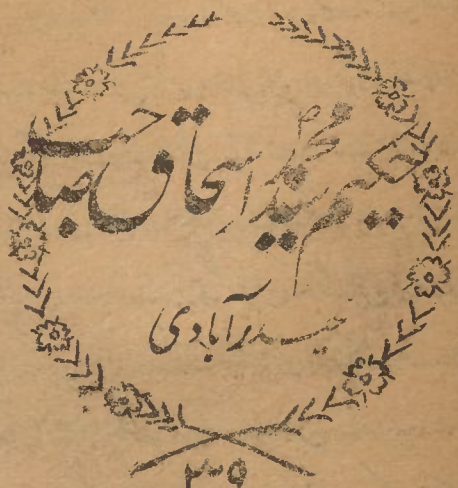 حکیم سید محمد اسحاق صاحب
حیدرآبادی
۲۳۹